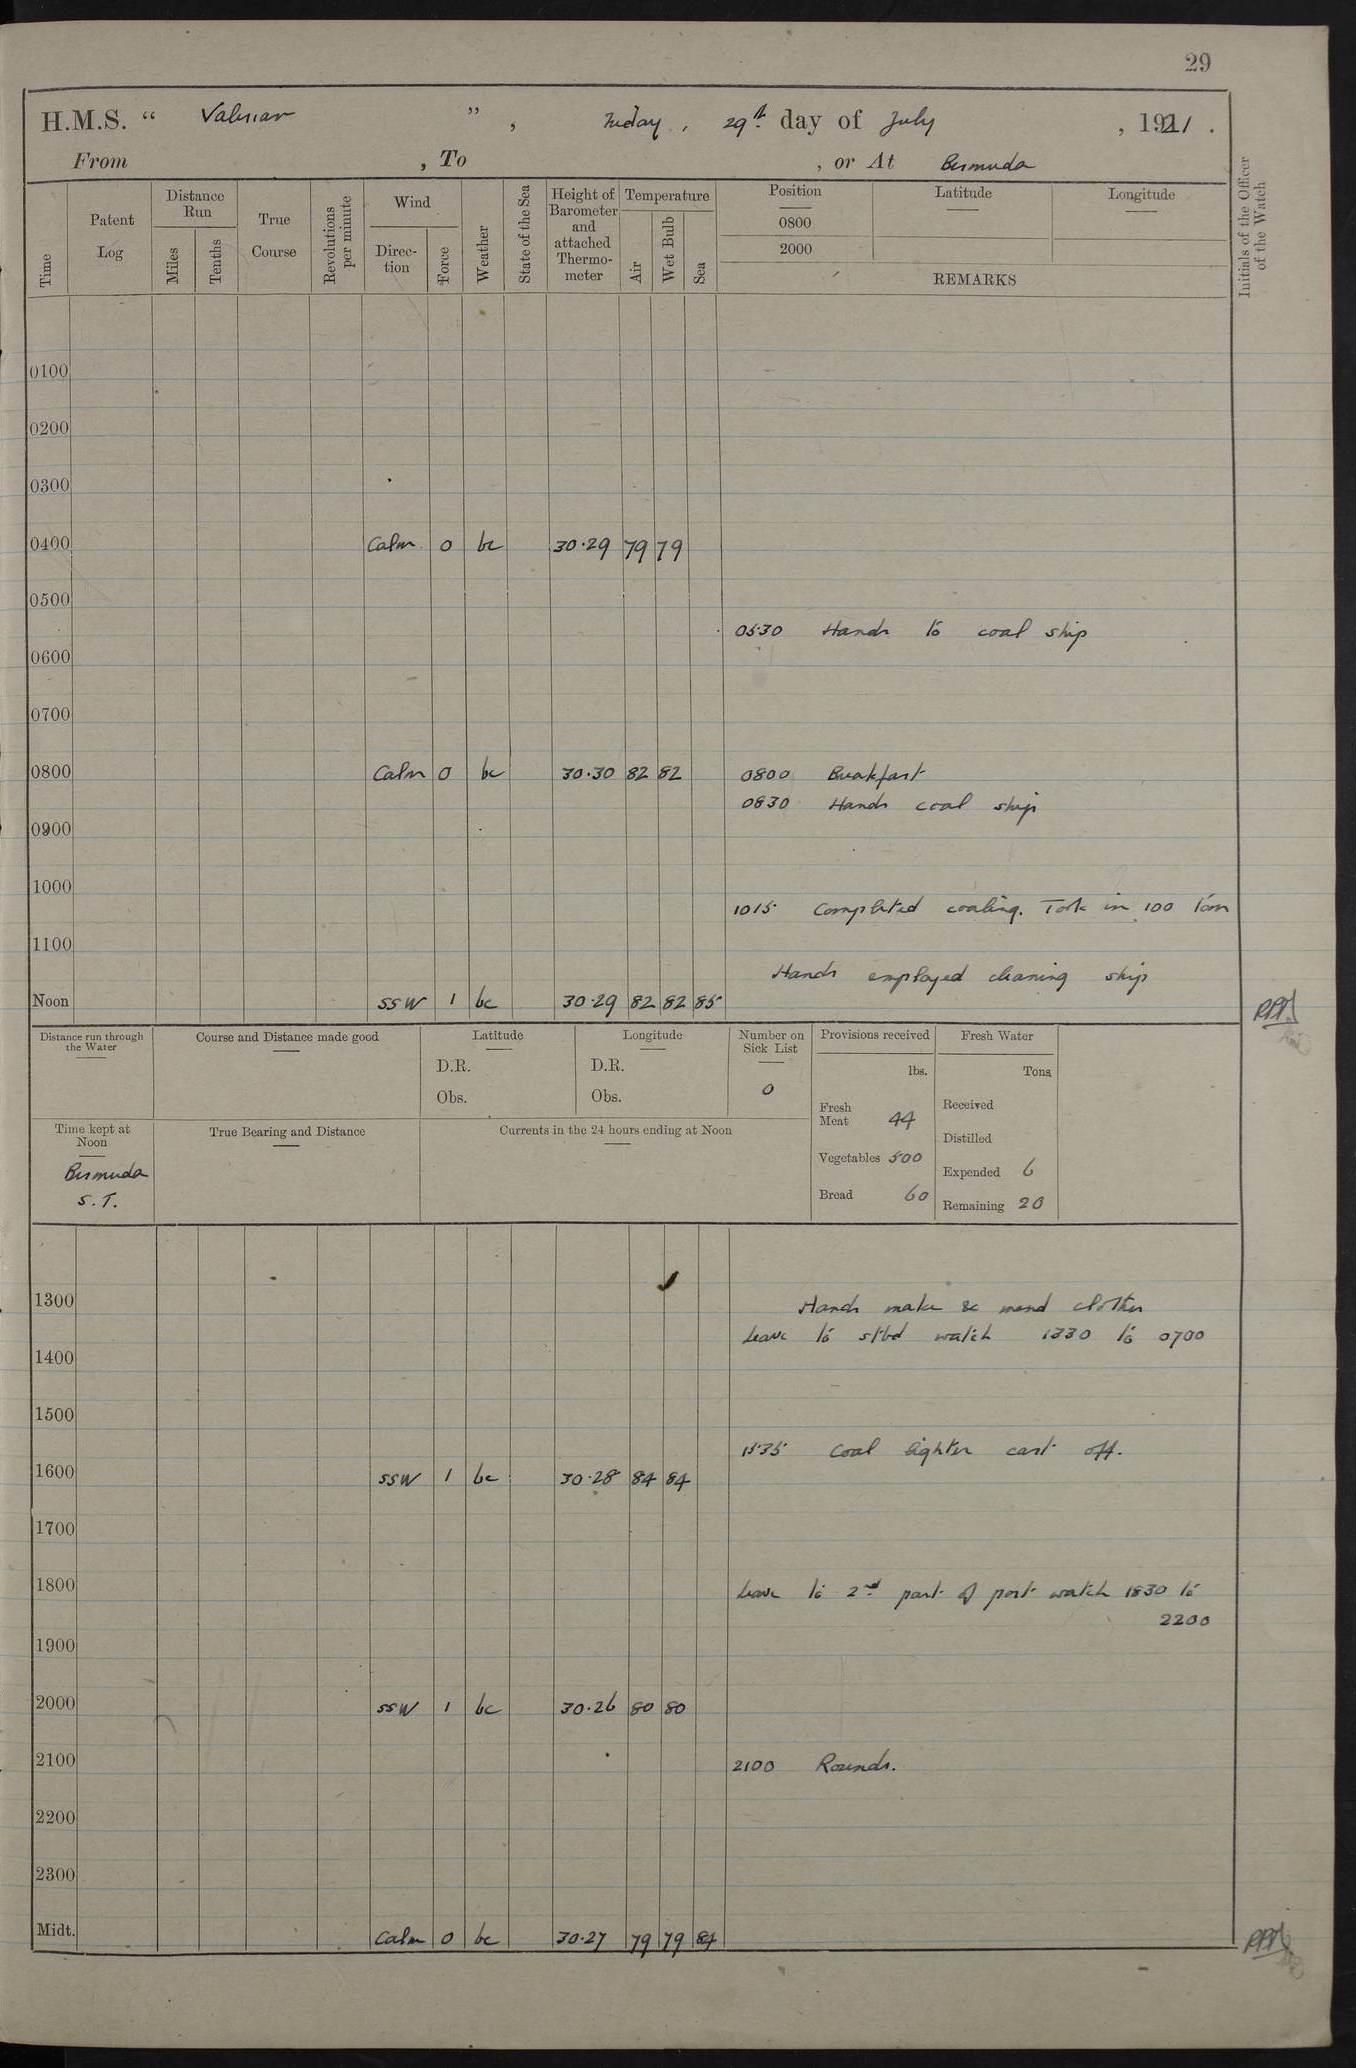 29
H.M.S. “ Valerian ” , Friday , 29th day of July , 1921 .
From , To , or At Bermuda
Time
Patent Log
Distance Run
Miles
Tenths
True Course
Revolutions per minute
Wind
Direc-tion
Force
Weather
State of the Sea
Height of Barometer and attached Thermo-meter
Temperature
Air
Wet Bulb
Sea
Position
0800
2000
Latitude
Longitude
REMARKS
Initials of the Officer of the Watch
0100
0200
0300
0400 Calm 0 bc 30.29 79 79
0500
0530 Hands to coal ship
0600
0700
0800 Calm 0 bc 30.30 82 82 0800 Breakfast
0830 Hands coal ship
0900
1000
1015 Completed coaling. Took in 100 tons
1100
Hands employed cleaning ship
Noon SSW 1 bc 30.29 82 82 85
Distance run through the Water
Course and Distance made good
Latitude
D.R.
Obs.
Longitude
D.R.
Obs.
Number on Sick List
0
Provisions received
lbs.
Fresh Meat 44
Vegetables 500
Bread 60
Fresh Water
Tons
Received
Distilled
Expended 6
Remaining 20
Time kept at Noon
Bermuda
S.T.
True Bearing and Distance
Currents in the 24 hours ending at Noon
1300 Hands make & mend clothes
Leave to stbd watch 1330 to 0700
1400
1500
1535 Coal lighter cast off.
1600 SSW 1 bc 30.28 84 84
1700
1800 Leave to 2nd part of port watch 1830 to
2200
1900
2000 SSW 1 bc 30.26 80 80
2100 2100 Rounds.
2200
2300
Midt. Calm 0 bc 30.27 79 79 84